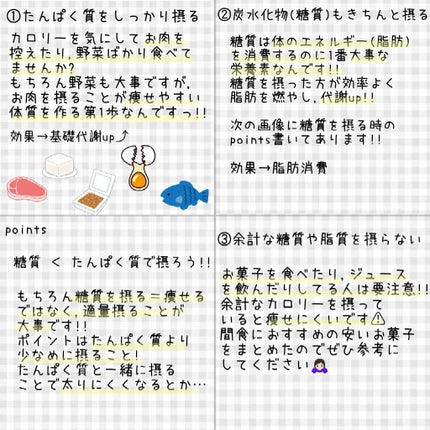 ①たんぱく質をしっかり摂る
カロリーを気にしてお肉を
控えたり,野菜ばかり食べて
ませんか?
もちろん野菜も大事ですが,
お肉を摂ることが痩せやすい
体質を作る第1歩なんですっ!!
効果→基礎代謝up⤴
②炭水化物(糖質)もきちんと摂る
糖質は体のエネルギー(脂肪)
を消費するのに1番大事な
栄養素なんです!!
糖質を摂った方が効率よく
脂肪を燃やし,代謝up!!
次の画像に糖質を摂る時の
points書いてあります!!
効果→脂肪消費
points
糖質 < たんぱく質で摂ろう!!
もちろん糖質を摂る=痩せる
ではなく,適量摂ることが
大事です!!
ポイントはたんぱく質より
少なめに摂ること!
たんぱく質と一緒に摂る
ことで太りにくくなるとか…
③余計な糖質や脂質を摂らない
お菓子を食べたり,ジュース
を飲んだりしてる人は要注意!!
余計なカロリーを摂って
いると痩せにくいです⚠
間食におすすめの安いお菓子
をまとめたのでぜひ参考に
してください🙇‍♀️